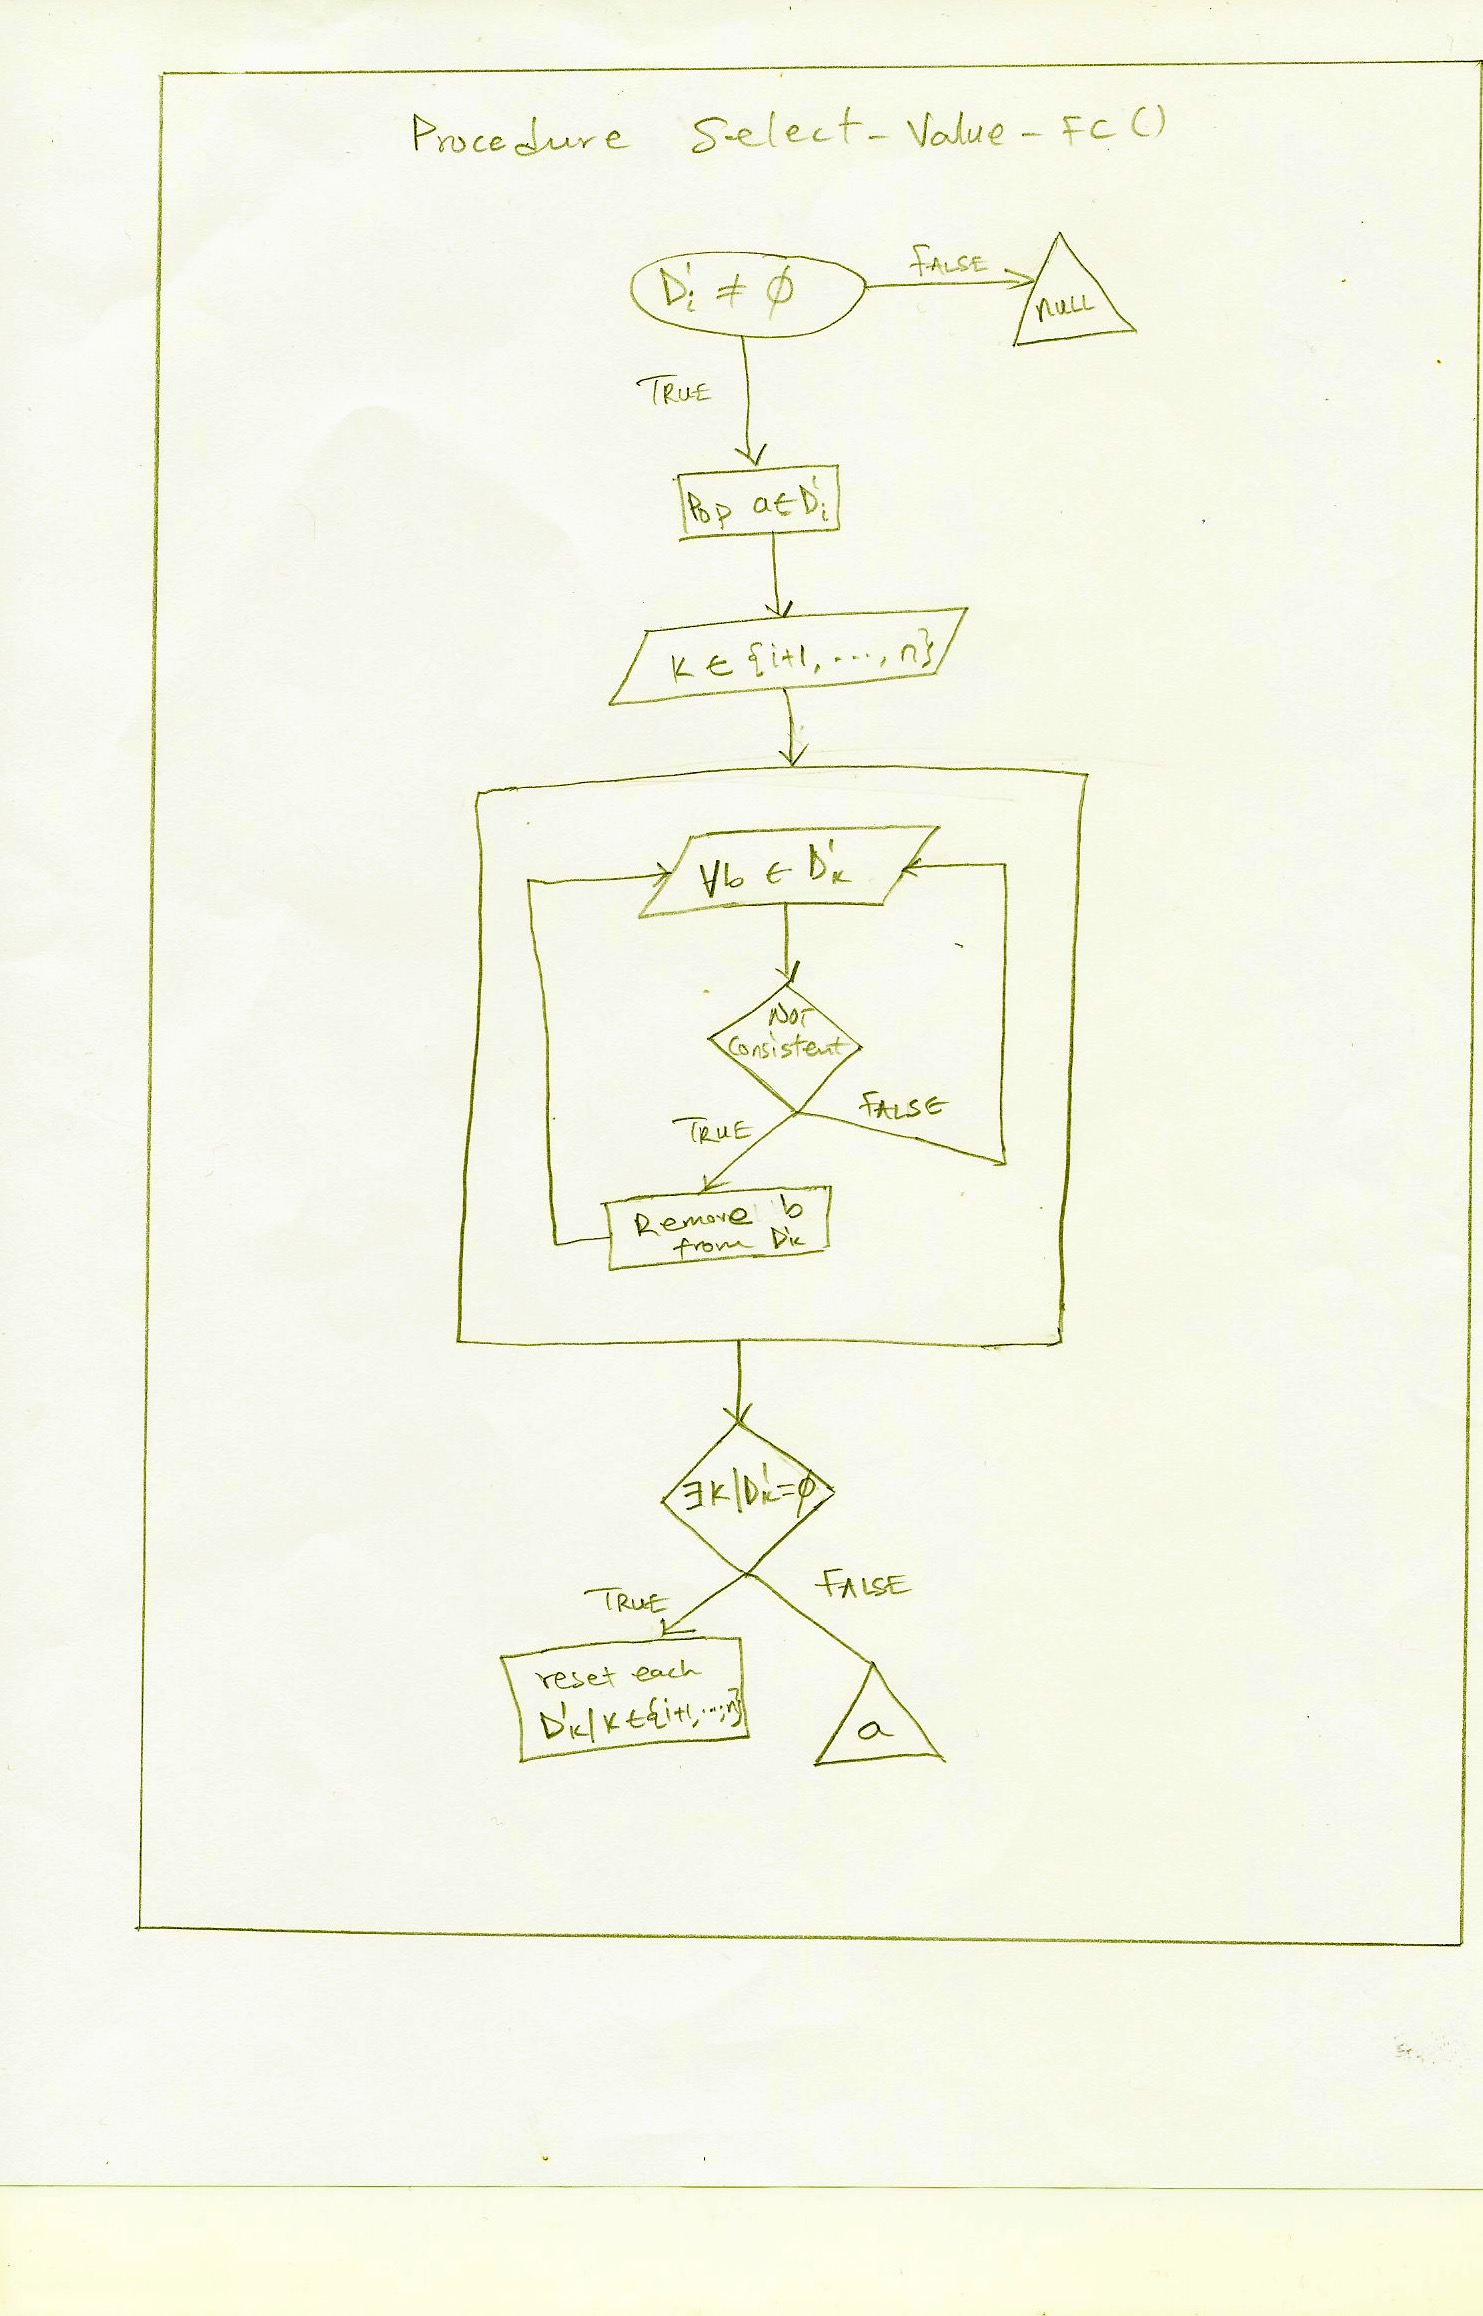 Procedure Select-Value-FC()
D'i ≠ ϕ
FALSE
NULL
TRUE
Pop a∈D'i
k ∈ {i+1, ..., n}
∀b ∈ D'k
NOT
Consistent
FALSE
TRUE
Remove b
from D'k
∃k|D'k=ϕ
TRUE
FALSE
reset each
D'k/k∈{i+1,...,n}
a